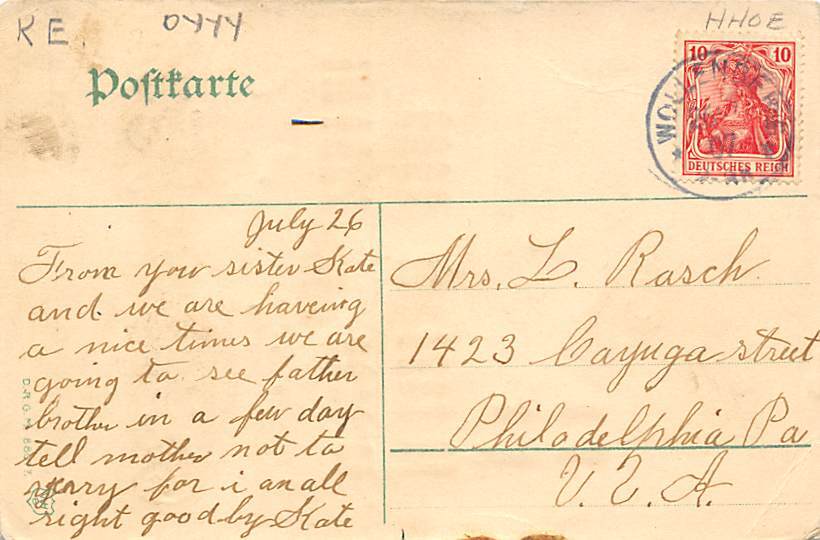 KE 0444
HHOE
Postkarte
10 10
DEUTSCHES REICH
July 26
From your sister Kate
and we are haveing
a nice times we are
going to see father
brother in a few day
tell mother not to
for i an all
right good by Kate
Mrs. L. Rasch
1423 Cayuga street
Philadelphia Pa
U. S. A.